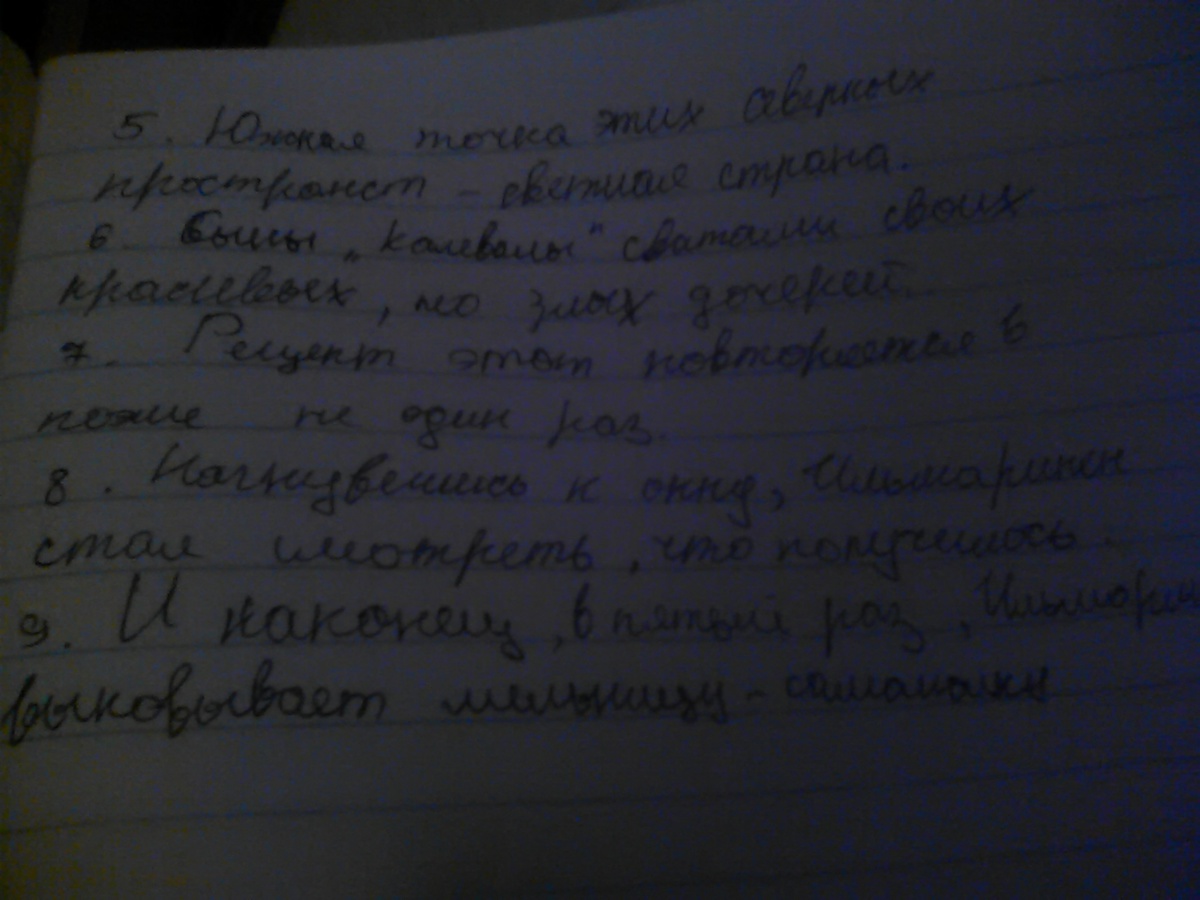 5. Южная точка этих северных
пространст - светлая страна.
6 "Калевалы" сватали своих
красивых, но злых дочерей.
7. Рецепт этот повторяется в
поэме не один раз.
8. Нагнувшись к окну, Ильмаринен
стал смотреть, что получилось.
9. И наконец, в пятый раз, Ильмарин
выковывает мельницу-самомолку